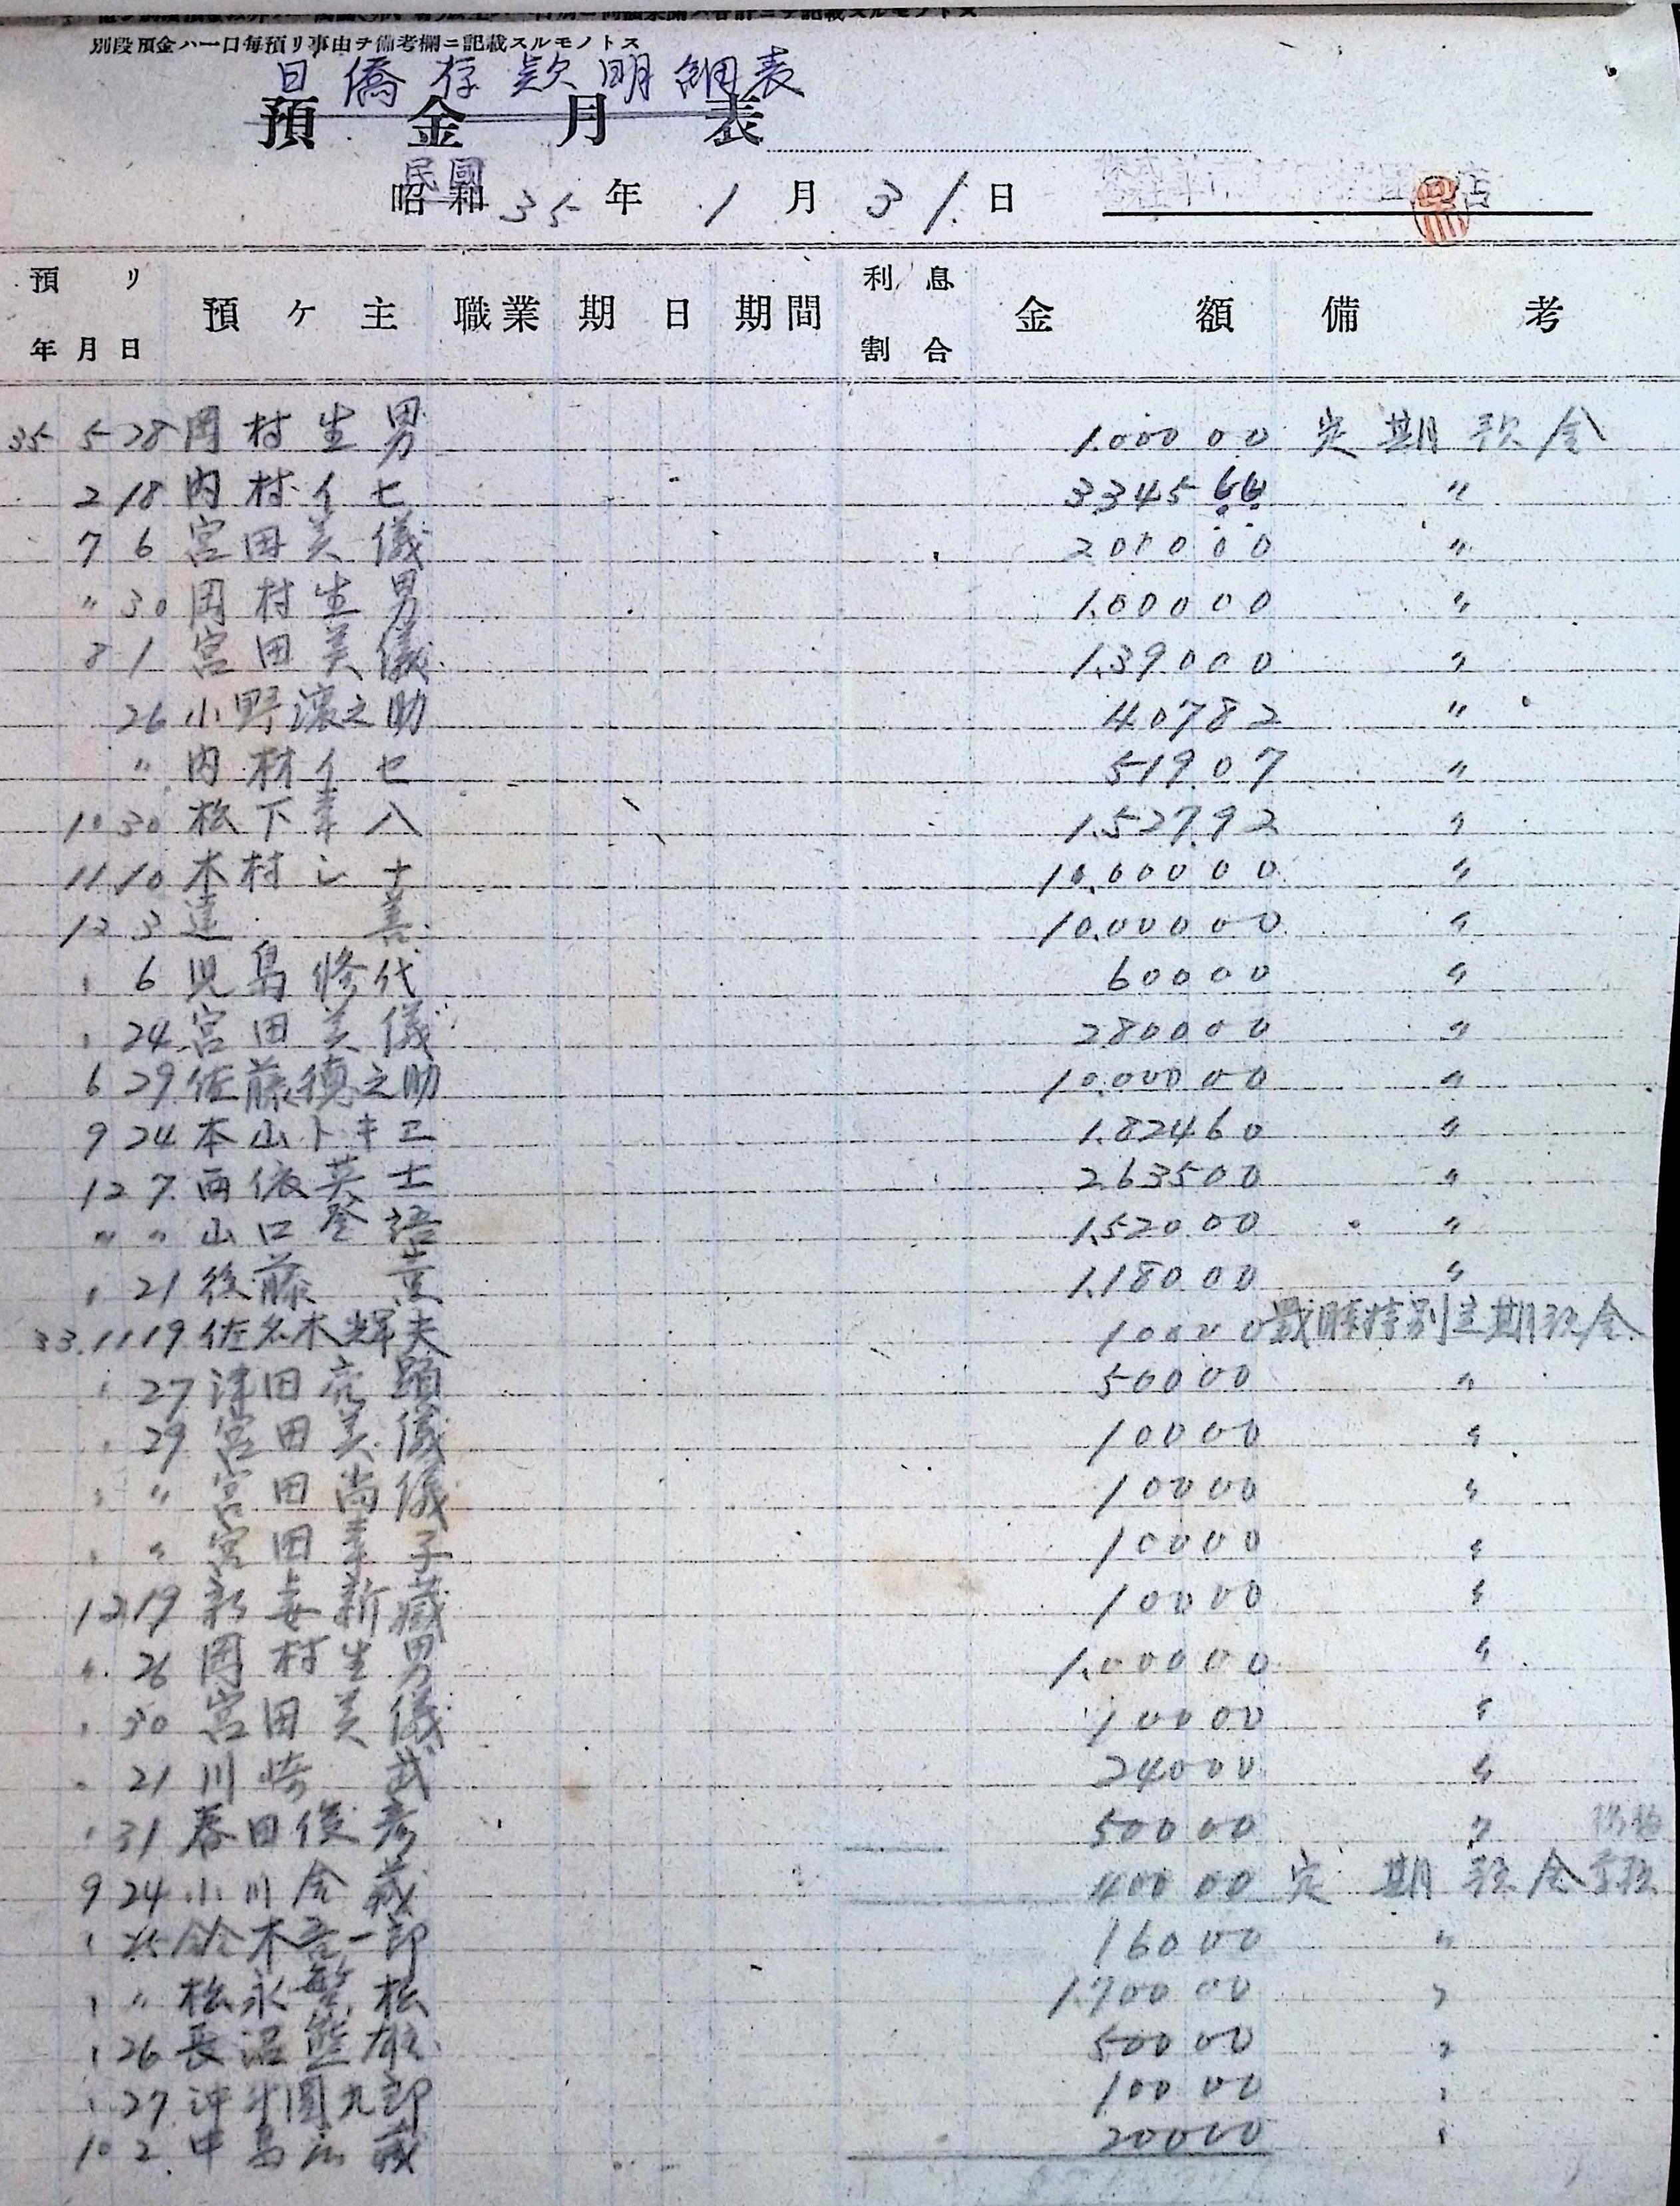 別段預金ハ一口每預リ事由チ備考欄ニ記載スルモノトス
日僑存款明細表
預金月表
民國
昭和 35 年 1 月 31 日
預リ年月日 預ケ主 職業 期日 期間 利息割合 金額 備考
35 5 28 岡村生男 1.000 00 定期預金
2 18 内村イセ 3345 66 〃
7 6 宮田美儀 2000 00 〃
〃 30 岡村生男 1.000 00 〃
8 1 宮田美儀 1.390 00 〃
26 小野濱之助 407 82 〃
〃 内村イセ 519 07 〃
10 30 松下幸八 1.527 92 〃
11 10 木村シナ 10.000 00 〃
12 3 達喜 10.000 00 〃
〃 6 児島修代 600 00 〃
〃 24 宮田美儀 2800 00 〃
6 29 佐藤德之助 10.000 00 〃
9 24 本山トキエ 1.824 60 〃
12 7 西依英士 2635 00 〃
〃 〃 山口登 1.520 00 〃
〃 21 後藤 1.180 00 〃
33 11 19 佐々木輝夫 100 00 戰勝特別定期預金
〃 27 津田 500 00 〃
〃 29 宮田美儀 100 00 〃
〃 〃 宮田尚儀 100 00 〃
〃 〃 宮田幸子 100 00 〃
12 19 新藏 100 00 〃
〃 26 岡村生男 1.000 00 〃
〃 30 宮田美儀 100 00 〃
〃 21 川崎武 240 00 〃
〃 31 春田俊彦 500 00 〃
9 24 小川金藏 400 00 定期預金
〃 25 鈴木吾一郎 160 00 〃
〃 〃 松永繁松 1.700 00 〃
〃 26 長沼熊雄 500 00 〃
〃 27 九郎 100 00 〃
10 2 中島藏 200 00 〃